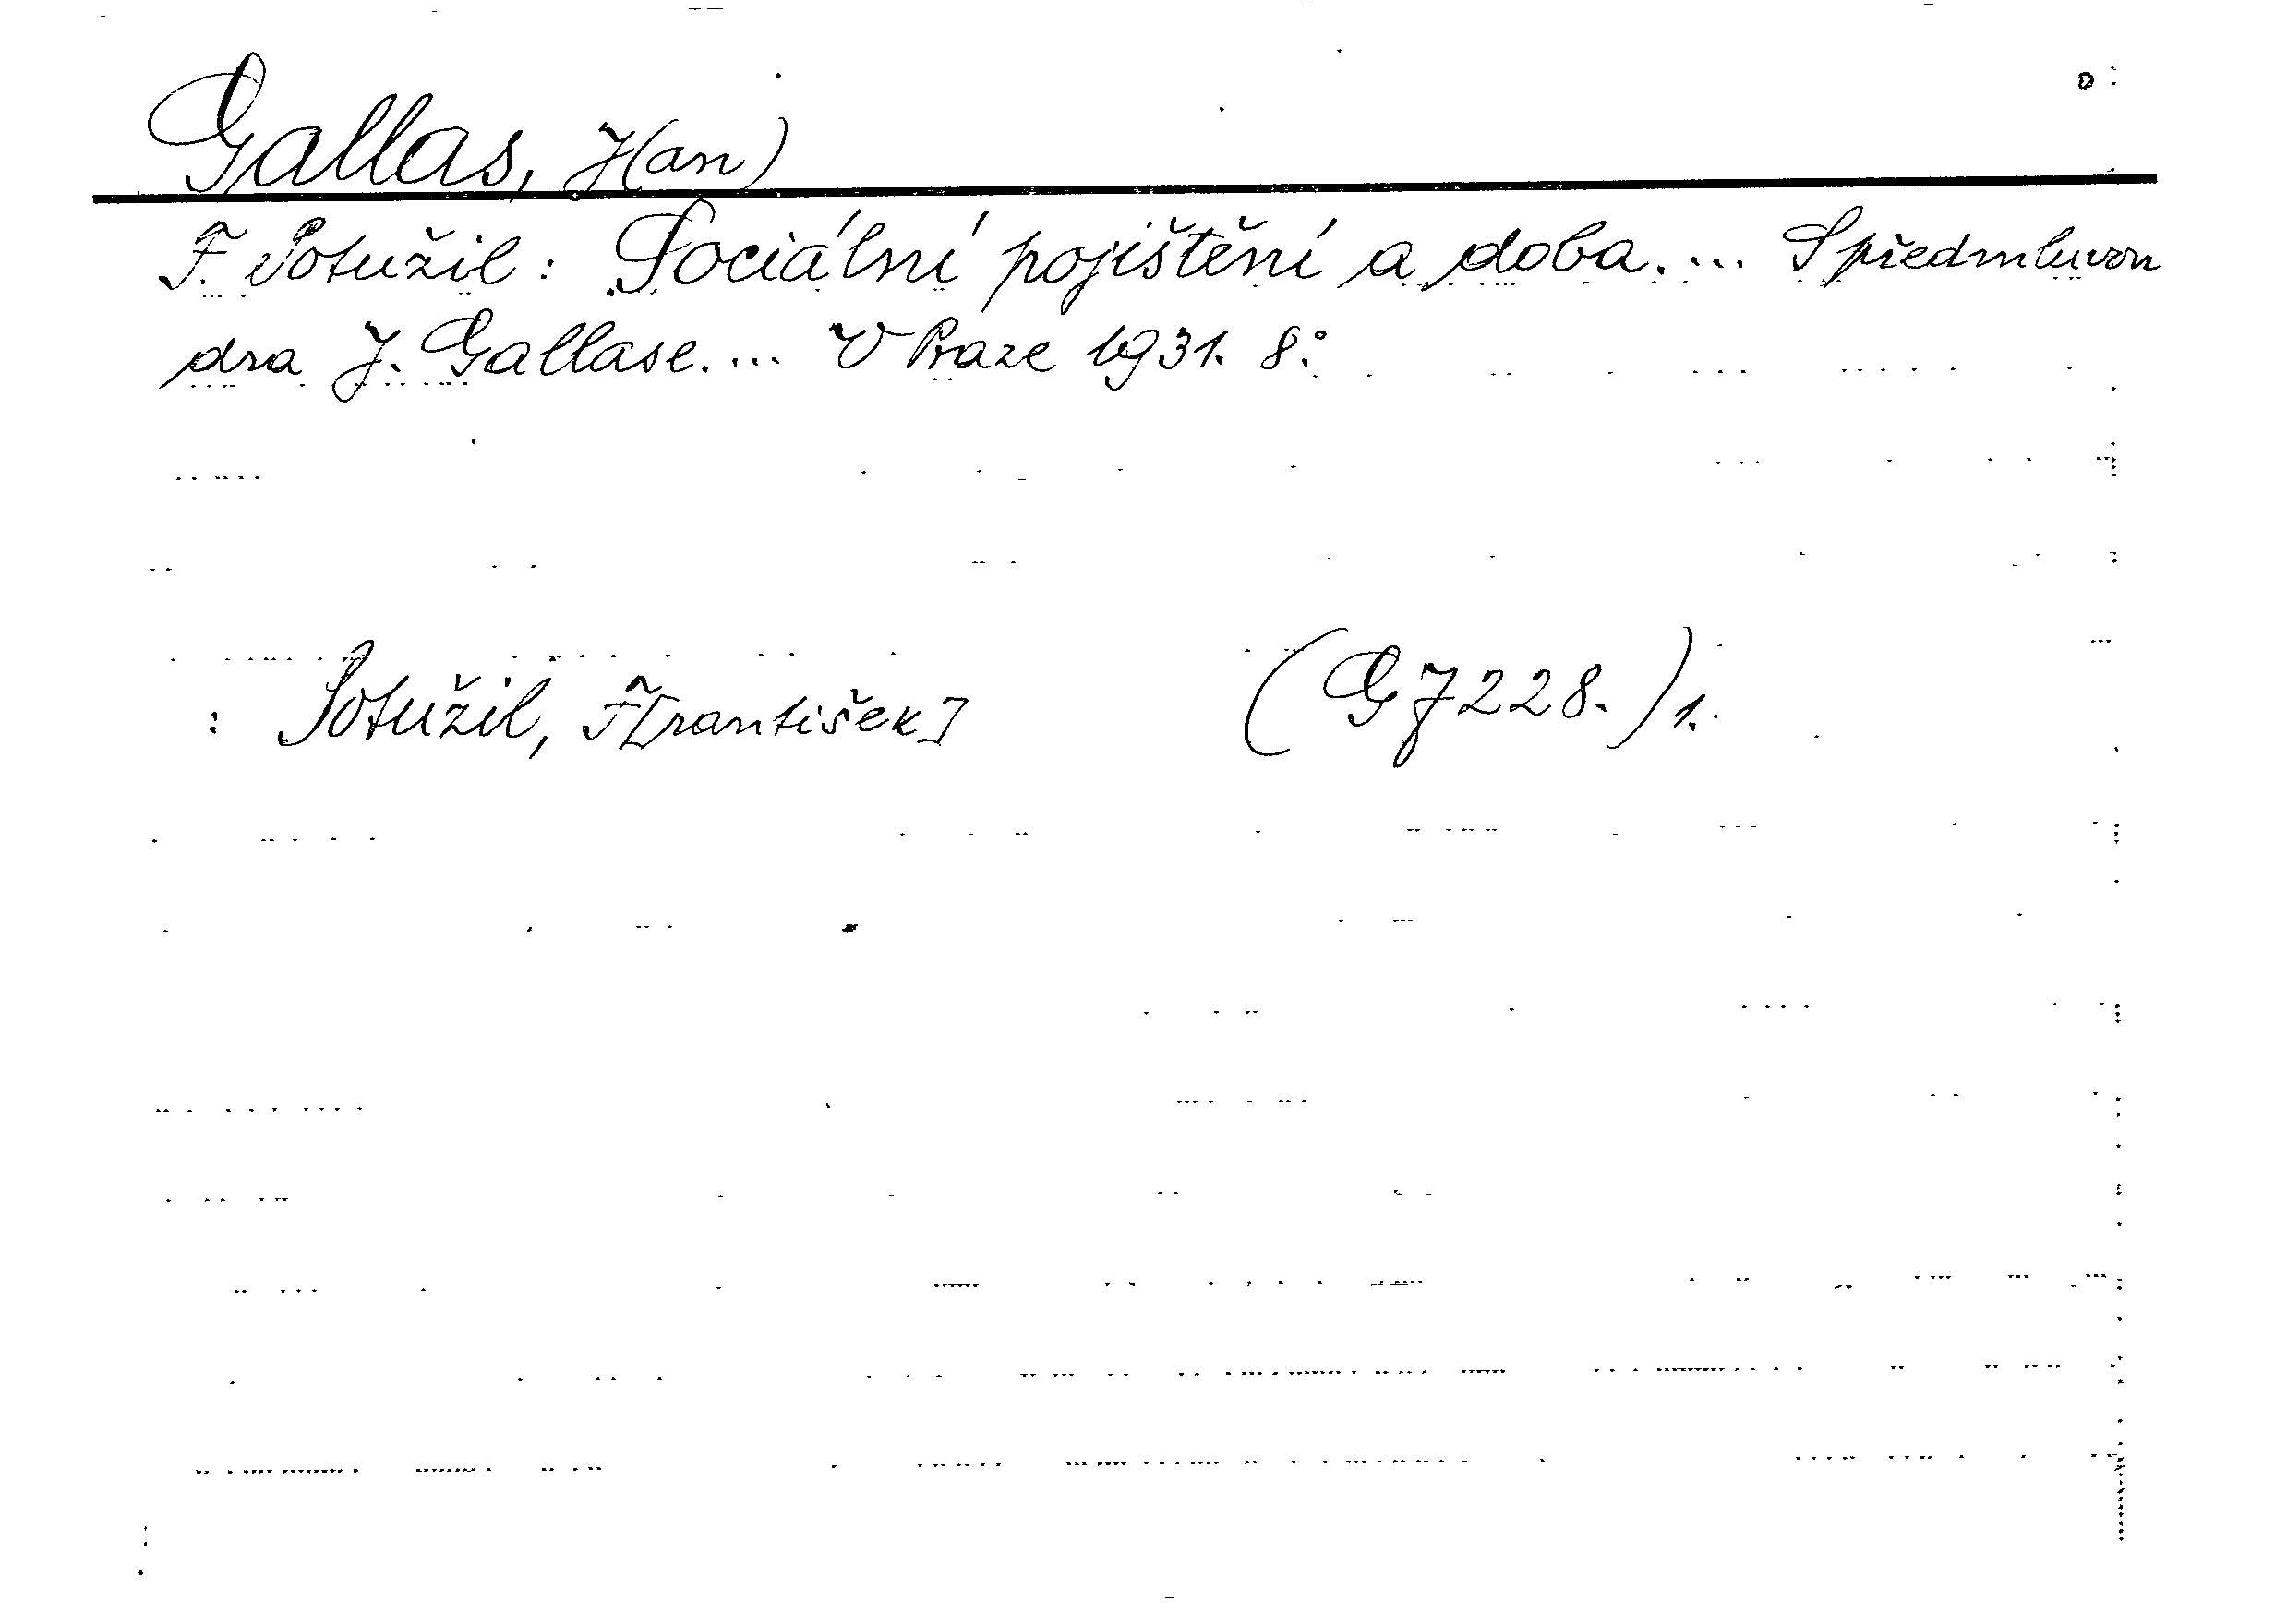 Gallas, J(an)
F. Potužil: Sociální pojištění a doba.... S předmluvou
dra J. Gallase.... V Praze 1931. 8°.
: Potužil, F[rantišek] (G J 228.) 1.